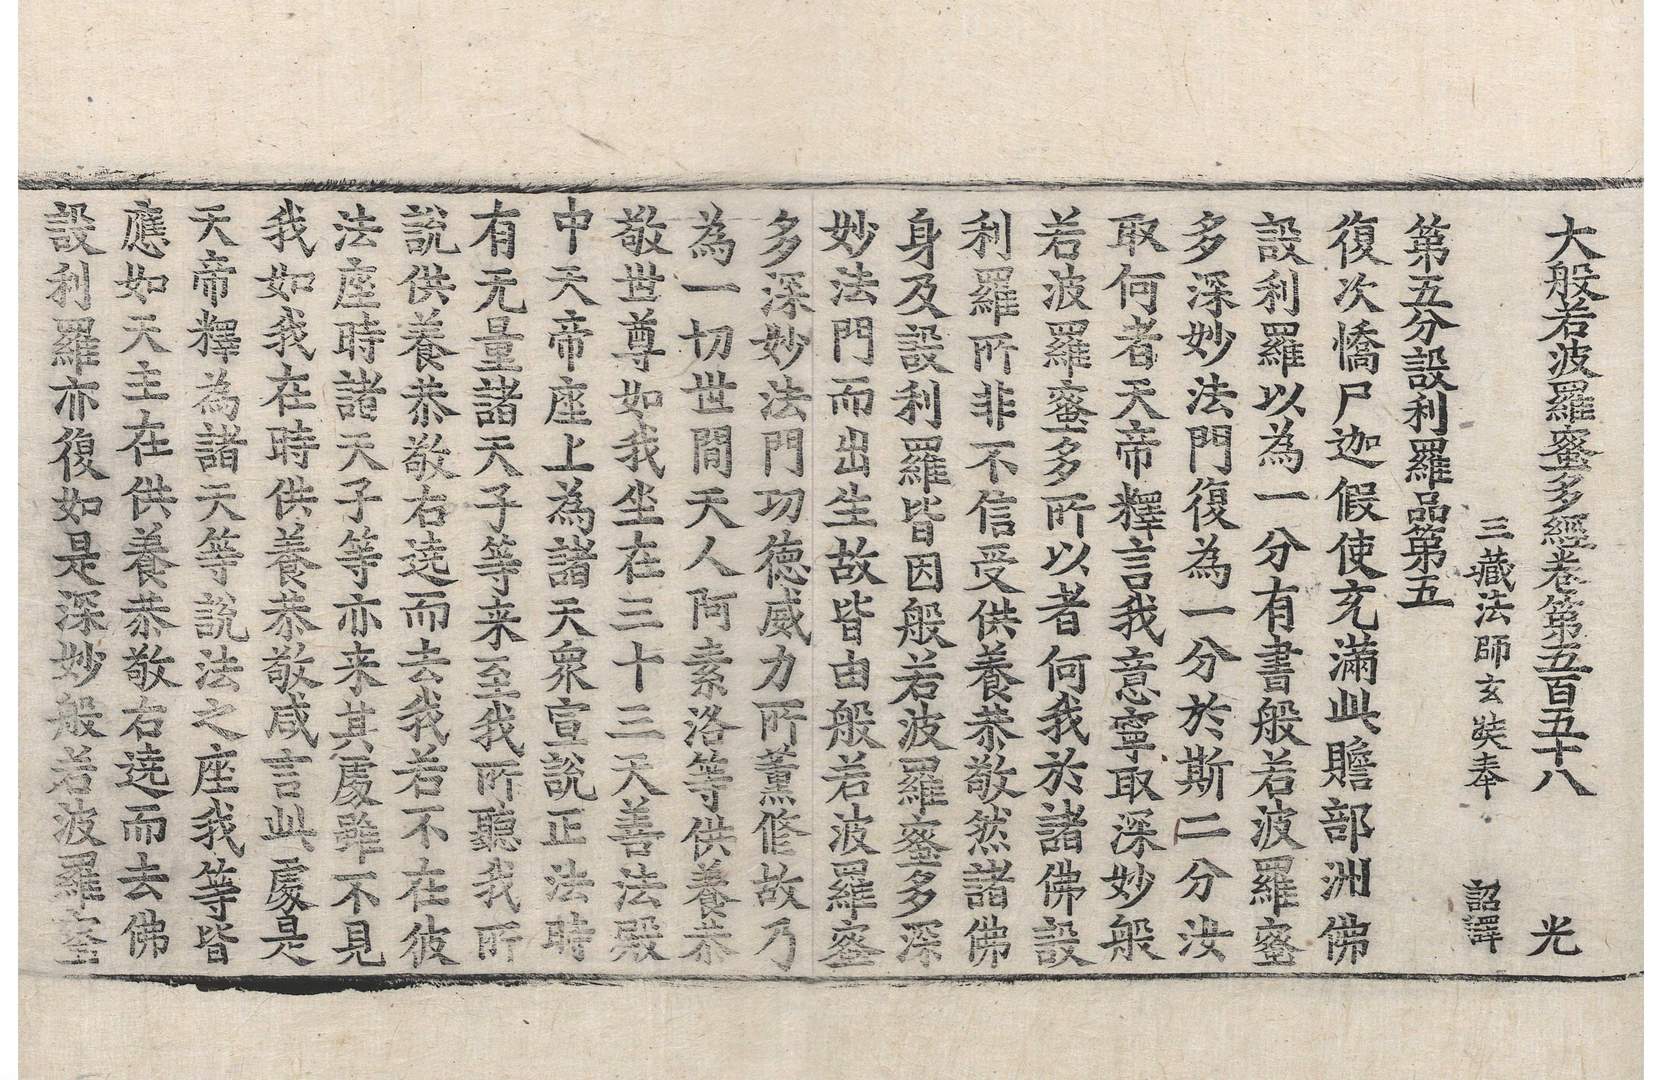 大般若波羅蜜多經卷第五百五十八 光
三藏法師玄奘奉 詔譯
第五分設利羅品第五
復次憍尸迦假使充滿此贍部洲佛
設利羅以為一分有書般若波羅蜜
多深妙法門復為一分於斯二分汝
取何者天帝釋言我意寧取深妙般
若波羅蜜多所以者何我於諸佛設
利羅所非不信受供養恭敬然諸佛
身及設利羅皆因般若波羅蜜多深
妙法門而出生故皆由般若波羅蜜
多深妙法門功德威力所薰修故乃
為一切世間天人阿素洛等供養恭
敬世尊如我坐在三十三天善法殿
中天帝座上為諸天眾宣說正法時
有无量諸天子等来至我所聽我所
說供養恭敬右遶而去我若不在彼
法座時諸天子等亦来其處雖不見
我如我在時供養恭敬咸言此處是
天帝釋為諸天等說法之座我等皆
應如天主在供養恭敬右遶而去佛
設利羅亦復如是深妙般若波羅蜜